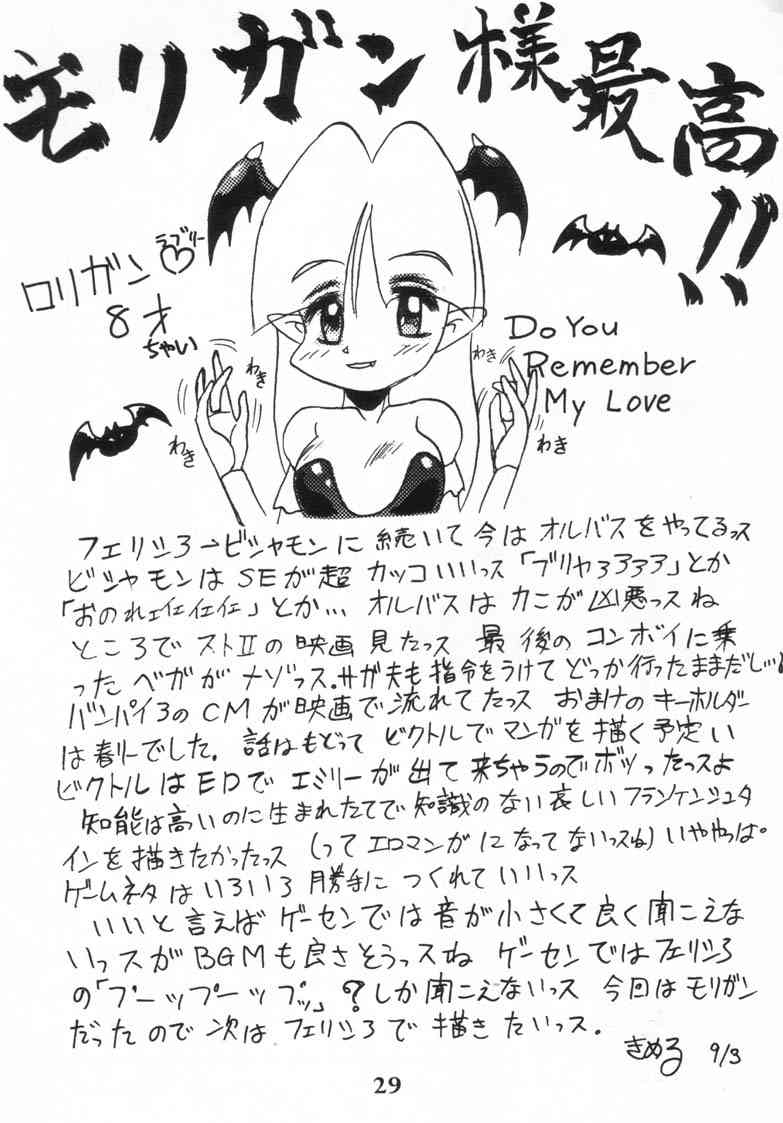 モリガン様最高!!
ロリガン
ラブリー
8才
ちゃい
わき
わき
わき
わき
Do You
Remember
My Love
フェリシア→ビシャモンに続いて今はオルバスをやってるっス
ビシャモンはSEが超カッコいいっス「ブリャアアアア」とか
「おのれェイイイイ」とか… オルバスはカニが凶悪っスね
ところでストⅡの映画見たっス 最後のコンボイに乗
ったベガがナゾっス。サガ夫も指令をうけてどっか行ったままだし…
バンパイアのCMが映画で流れてたっス おまけのキーホルダー
は春リーでした。話はもどって ビクトルでマンガを描く予定い
ビクトルはEDでエミリーが出て来ちゃうのでボツったっスよ
知能は高いのに生まれたてで知識のない哀しいフランケンシュタ
インを描きたかったっス (ってエロマンガになってないっスね) いややっぱ。
ゲームネタはいろいろ勝手につくれていいっス
いいと言えばゲーセンでは音が小さくて良く聞こえな
いっスがBGMも良さそうっスね ゲーセンではフェリシア
の「プーップーップッ」?しか聞こえないっス 今回はモリガン
だったので次はフェリシアで描きたいっス。
きめる 9/3
29